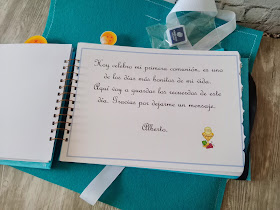 Hoy celebro mi primera comunión, es uno
de los días más bonitos de mi vida.
Aquí voy a guardar los recuerdos de este
día. Gracias por dejarme un mensaje.
Alberto.